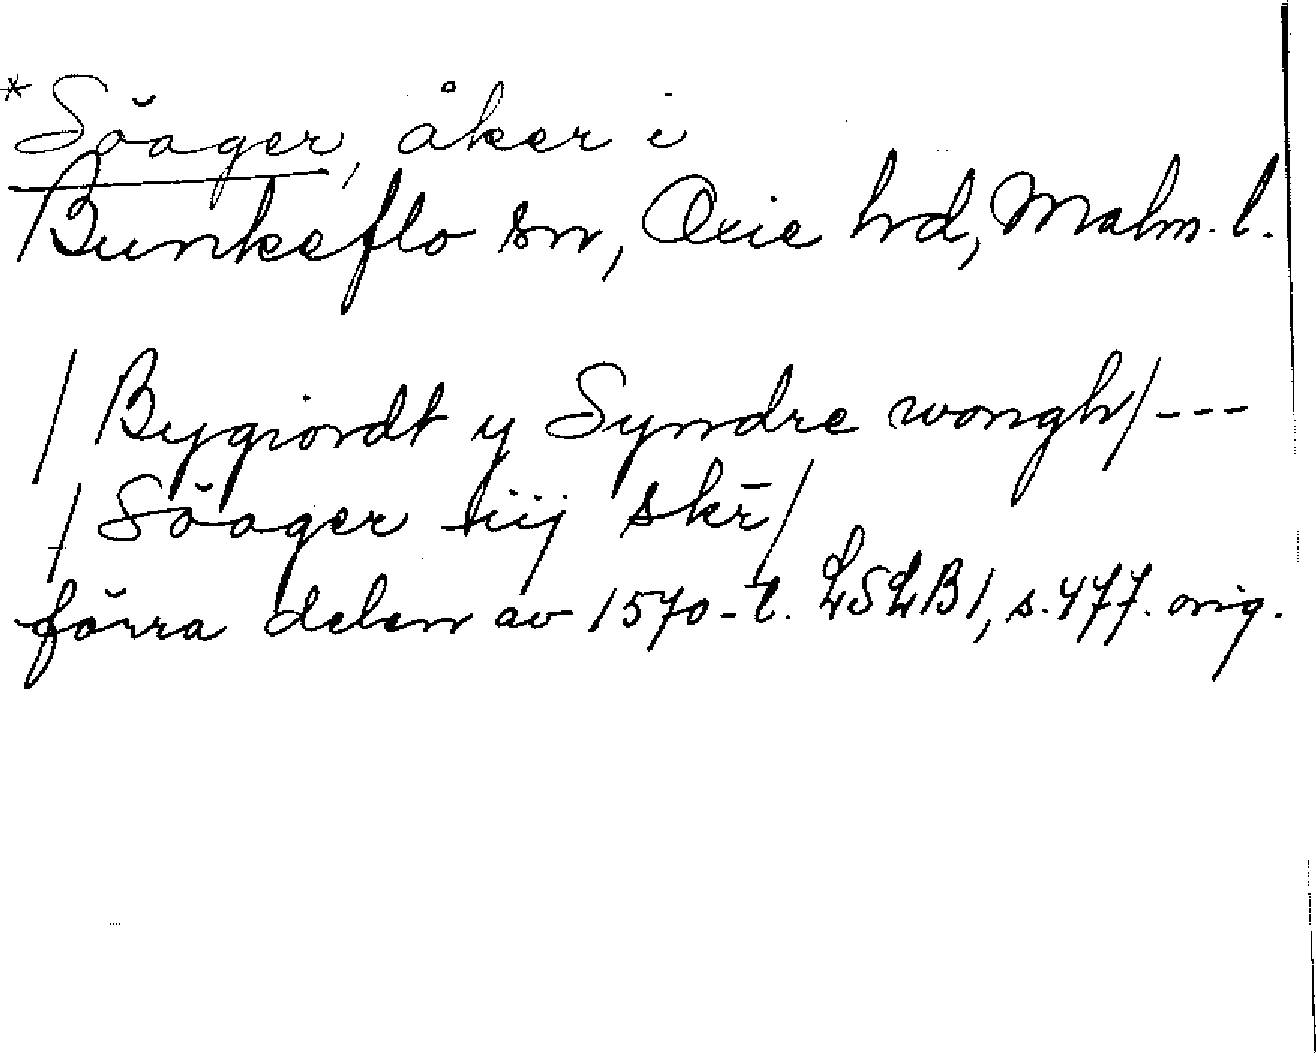 *Söager, åker i
Bunkeflo sn, Oxie hrd, Malm. l.
/Bygiordt y Syndre wongh/---
/Söager iiij skr̄/
förra delen av 1570-t. LSLB1, s. 477. orig.